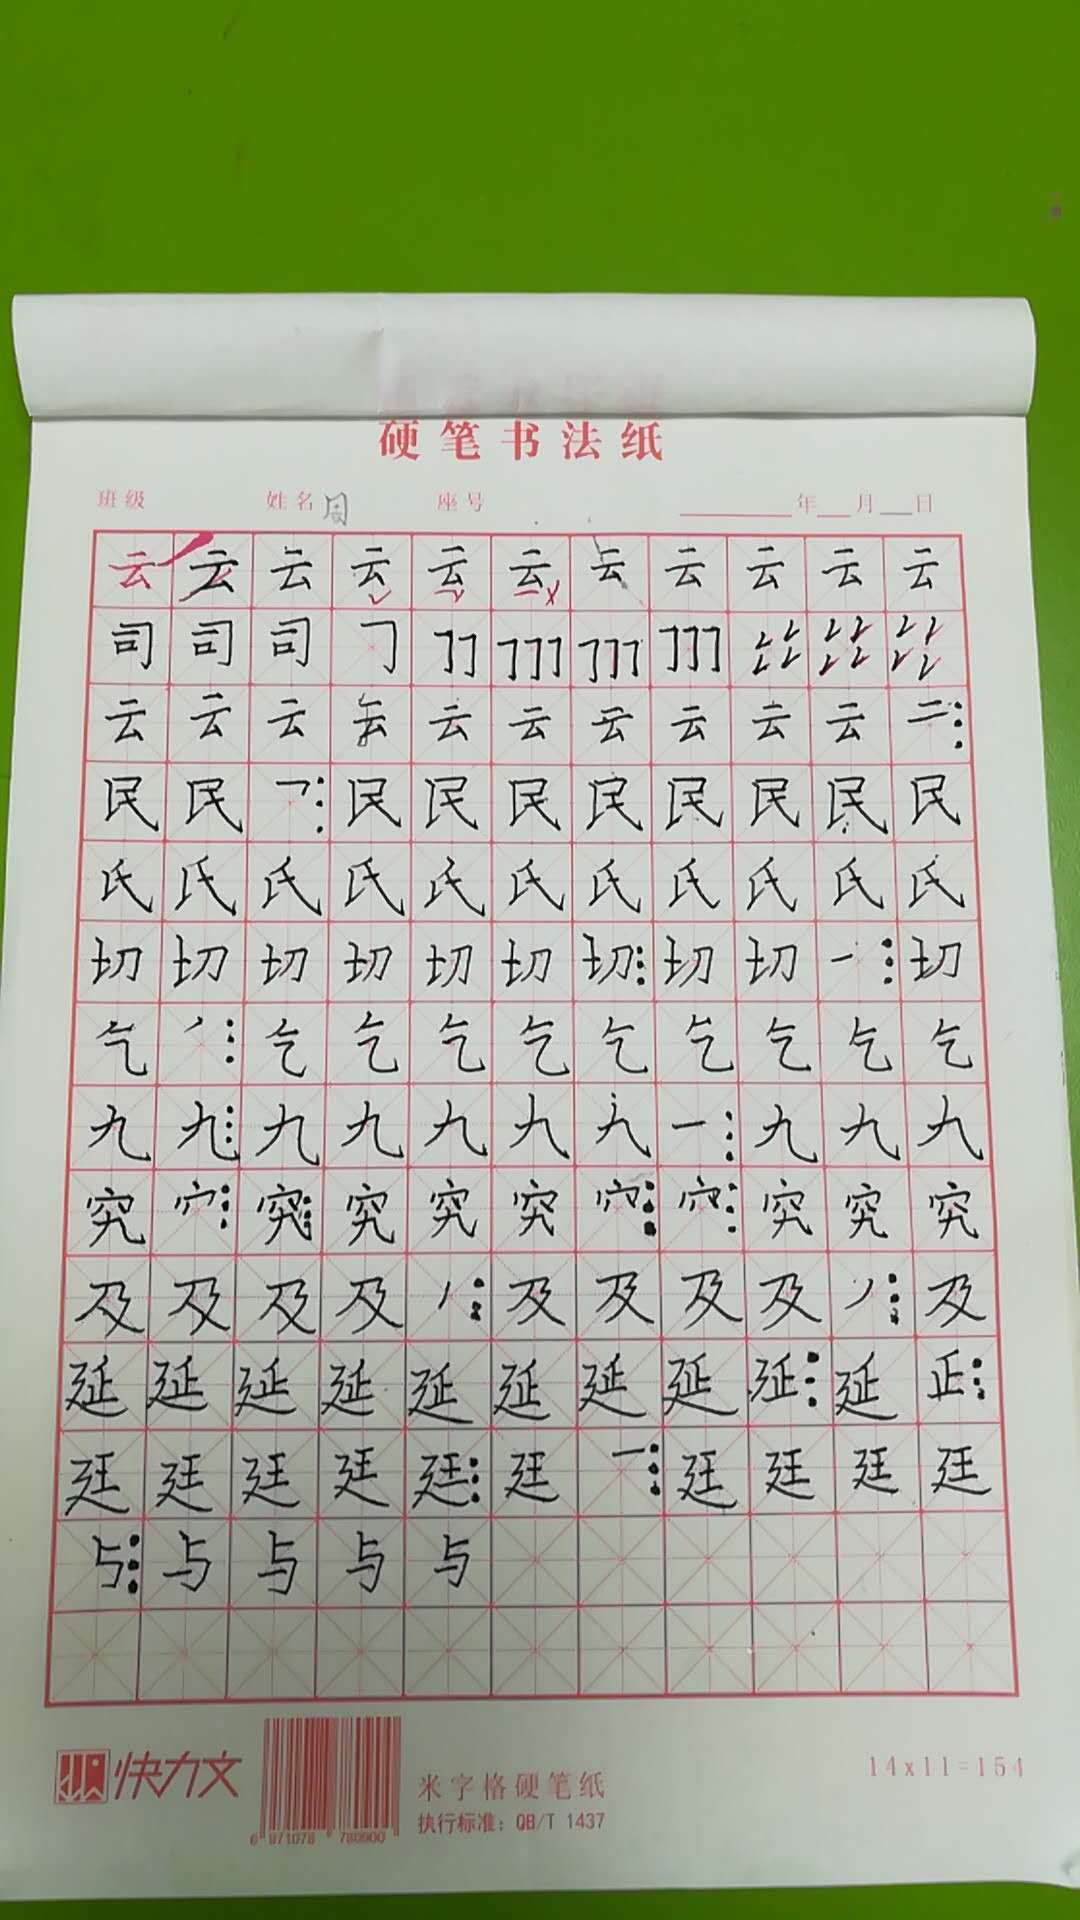 硬笔书法纸
班级 姓名 周 座号 年 月 日
云 云 云 云 云 云 云 云 云 云 云
司 司 司
云 云 云 云 云 云 云 云 云 云 二
民 民 民 民 民 民 民 民 民 民
氏 氏 氏 氏 氏 氏 氏 氏 氏 氏 氏
切 切 切 切 切 切 切 切 切 一 切
气 气 气 气 气 气 气 气 气 气
九 九 九 九 九 九 九 一 九 九 九
究 穴 究 究 究 究 穴 穴 究 究 究
及 及 及 及 及 及 及 及 及
延 延 延 延 延 延 延 延 延 延 正
廷 廷 廷 廷 廷 廷 一 廷 廷 廷 廷
与 与 与 与 与
快力文
米字格硬笔纸
执行标准：QB/T 1437
6 971078 780900
14x11=154